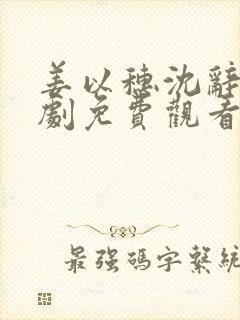 姜以穗沈辭
劇免費觀看
最強碼字繫統